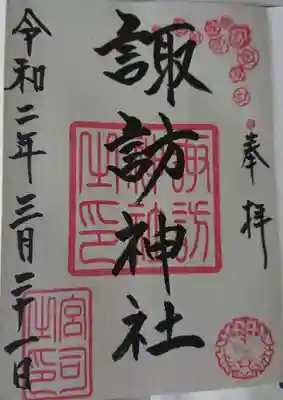 奉拝
諏訪神社
諏訪神社之印
令和二年三月二十一日
宮司之印